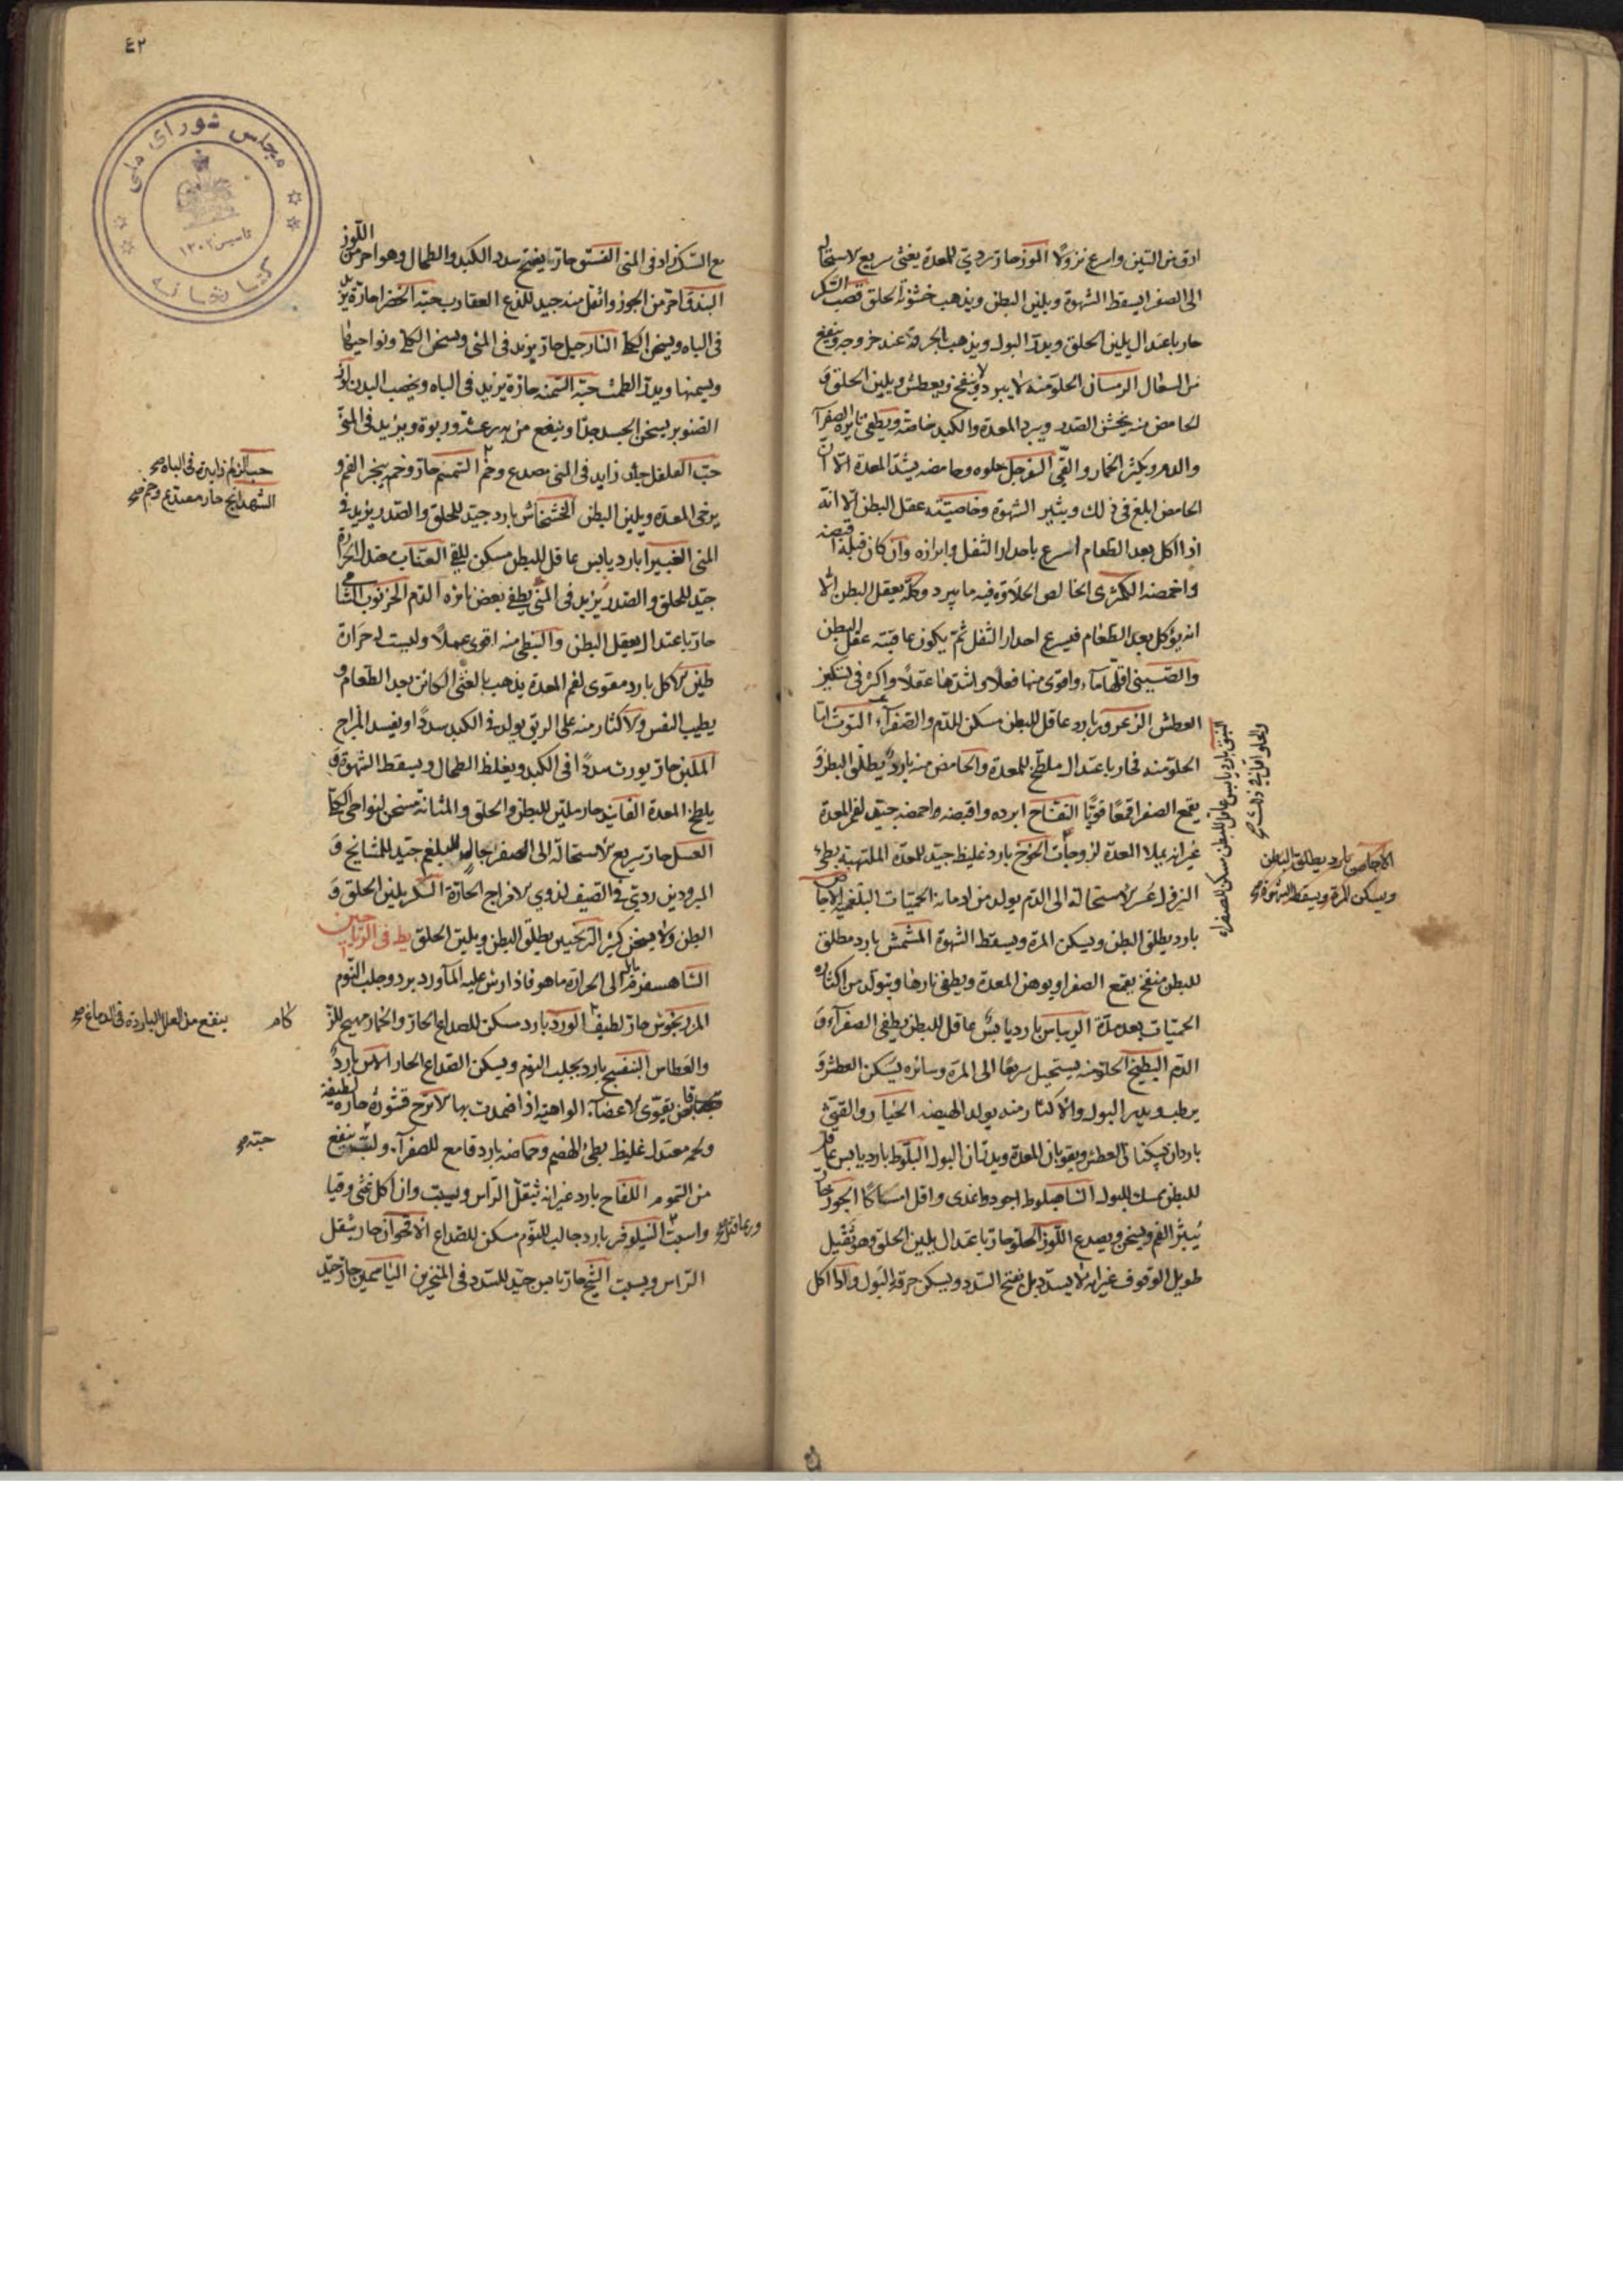 ادق من التين واسرع نزولا الموز حار ردي للمعدة يغثى سريع الاستحالة
الى الصفرا يسقط الشهوة ويلين البطن ويذهب خشونة الحلق قصب السكر
حار باعتدال يلين الحلق ويدر البول ويذهب الحرقة عند خروجه وينفع
من السعال الرمان الحلو منه لا يبرد وينفخ ويعطش ويلين الحلق و
الحامض منه يخشن الصدر ويبرد المعدة والكبد خاصة ويطفى نايرة الصفرآ
والدم ويكسر الخمار والقى السفرجل حلوه وحامضه يشد المعدة الا ان
الحامض ابلغ فى ذلك ويثير الشهوة وخاصيته عقل البطن الا انه
اذا اكل بعد الطعام اسرع باحدار الثفل وابرازه وان كان قبله اقبضه
واحمضه الكمثرى الخالص الحلاوة فيه ما يبرد وكله يعقل البطن الا
انه يؤكل بعد الطعام فيسرع احدار الثفل ثم يكون عاقبته عقل البطن
والصينى اقلها مآء واقوى منها فعلا واشدها عقلا واكثر فى تسكين
العطش الزعرور بارد عاقل للبطن مسكن للدم والصفرآء التوث اما
الحلو منه فحار باعتدال ملطخ للمعدة والحامض منه بارد يطلق البطن و
يقمع الصفرا قمعا قويا التفاح ابرده واقبضه واحمضه جيد لفم المعدة
غير انه يملا المعدة لزوجات الخوخ بارد غليظ جيد للمعدة الملتهبة بطىء
النزول عسر الاستحالة الى الدم يولد من ادمانه الحميات البلغمية الاجاص
بارد يطلق البطن ويسكن المرة ويسقط الشهوة المشمش بارد مطلق
للبطن منفخ يقمع الصفرا ويوهن المعدة ويطفى نارها ويتولد من اكثاره
الحميات بعد مدة الريباس بارد يابس عاقل للبطن يطفى الصفرآء و
الدم البطيخ الحلو منه يستحيل سريعا الى المرة وسائره يسكن العطش و
يرطب ويدر البول والاكثار منه يولد الهيضه الخيار والقثى
باردان يسكنان العطش ويقويان المعدة ويدران البول البلوط بارد يابس عاقل
للبطن يمسك البول الشاهبلوط اجود واغذى واقل امساكا الجوز حار
يبثر الفم ويسخن ويصدع اللوز الحلو حار باعتدال يلين الحلق وهو ثقيل
طويل الوقوف غير انه لا يسدد بل يفتح السدد ويسكن حرقة البول واذا اكل
النبق بارد يابس عاقل للبطن مسكن للصفراء
والحلو اقل فى ذلك صح
الاجاص بارد يطلق البطن
ويسكن المرة ويسقط الشهوة صح
٤٢
مجلس شورای ملی
تاسیس ۱۳۰۲
كتابخانه
مع السكر زاد فى المنى الفستق حار يفتح سدد الكبد والطحال وهو احر من اللوز
البندق احر من الجوز واثقل منه جيد للذع العقارب حبة الخضرا حارة يزيد
فى الباه ويسخن الكلى النارجيل حار يزيد فى المنى ويسخن الكلى ونواحيها
ويسمنها ويدر الطمث حبة السمنه حارة يزيد فى الباه ويخصب البدن
الصنوبر يسخن الجسد جدا وينفع من به رعشة وربوة ويزيد فى المنى
حب الفلفل حار زايد فى المنى مصدع وخم السمسم حار وخم يبخر الفم و
يرخى المعدة ويلين البطن الخشخاش بارد جيد للحلق والصدر يزيد فى
المنى الغبيرا بارد يابس عاقل للبطن مسكن للقى العناب معتدل الحرارة
جيد للحلق والصدر يزيد فى المنى يطفى بعض نايرة الدم الخرنوب الشامى
حار باعتدال يعقل البطن والنبطى منه اقوى عملا وليست له حرارة
طين الاكل بارد مقوى لفم المعدة يذهب بالغثى الكائن بعد الطعام و
يطيب النفس والاكثار منه على الريق يولد فى الكبد سددا ويفسد المزاج
الملبن حار يورث سددا فى الكبد ويغلظ الطحال ويسقط الشهوة و
يلطخ المعدة الفانيد حار ملين للبطن والحلق والمثانة مسخن لنواحى الكلى
العسل حار سريع الاستحالة الى الصفرا جال للبلغم جيد للمشايخ و
المبرودين ردي فى الصيف لذوي الامزاج الحارة السكر يلين الحلق و
البطن ولا يسخن كثير الترنجبين يطلق البطن ويلين الحلق يط فى الرياحين
الشاهسفرم الى الحرارة ما هو فاذا رش عليه المآء ورد برد وجلب النوم
المرزنجوش حار لطيف الورد بارد مسكن للصداع الحار والخمار مهيج للز
والعطاس البنفسج بارد يجلب النوم ويسكن الصداع الحار الاس بارد
قابض يقوى الاعضآء الواهية اذا ضمدت بها الاترج قشوره حارة لطيفة
ولحمه معتدل غليظ بطئ الهضم وحماضه بارد قامع للصفرآء ولبه ينفع
من السموم اللفاح بارد غير انه يثقل الراس ويسبت وان اكل غثى وقيا
واسبت النيلوفر بارد جالب للنوم مسكن للصداع الاقحوان حار يثقل
الراس ويسبت الشيح حار يابس جيد للسدد فى المنخرين الياسمين حار جيد
حب الزلم زايد فى الباه صح
الشهدانج حار مصدع وخم صح
كام
ينفع من العلل الباردة فى الدماغ صح
حبه صح
وربما قتل صح